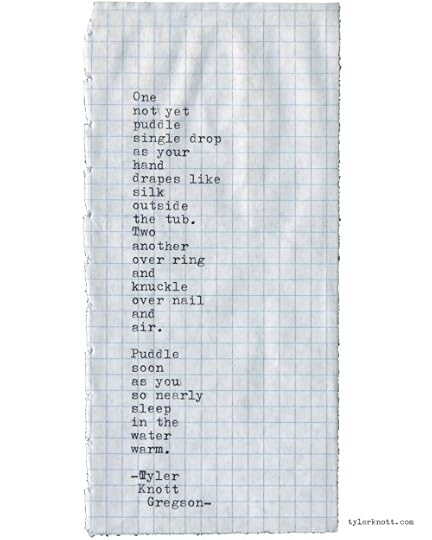 One
not yet
puddle
single drop
as your
hand
drapes like
silk
outside
the tub.
Two
another
over ring
and
knuckle
over nail
and
air.

Puddle
soon
as you
so nearly
sleep
in the
water
warm.

-Tyler
Knott
Gregson-
tylerknott.com